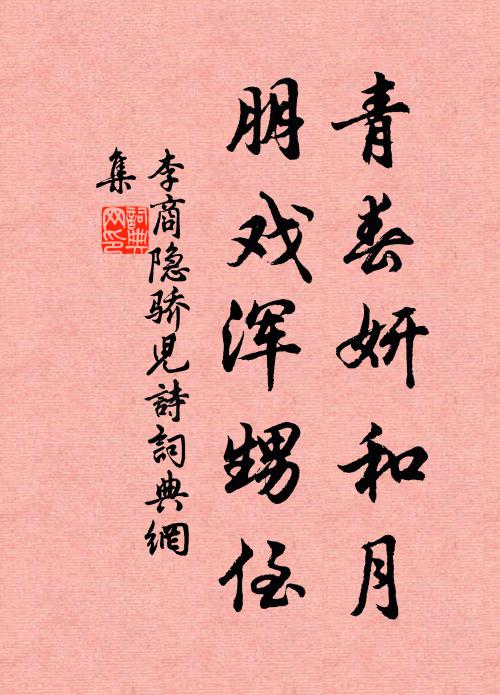 青春妍和月
朋戏浑甥侄
李商隐骄儿詩詞典網
集
詞典
网印